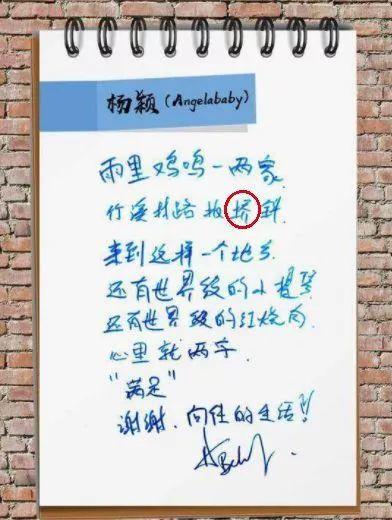 杨颖(Angelababy)
雨里鸡鸣一两家
竹溪村路板挢斜.
来到这样一个地方
还有世界级的小提琴
还有世界级的红烧肉.
心里就两字.
"满足"
谢谢.向往的生活!!